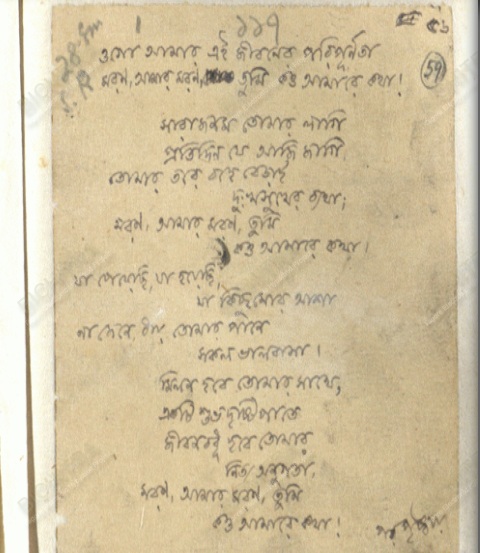 ১১৭
৫৯
ওগো আমার এই জীবনের পরিপূর্ণতা
মরণ, আমার মরণ, তুমি কও আমারে কথা!
সারাজনম তোমার লাগি
প্রতিদিন যে আছি জাগি,
তোমার তরে বহে বেড়াই
দুঃখসুখের ব্যথা;
মরণ, আমার মরণ, তুমি
কও আমারে কথা!
যা পেয়েছি, যা হয়েছি,
যা কিছু মোর আশা
না জেনে ধায় তোমার পানে
সকল ভালবাসা।
মিলন হবে তোমার সাথে,
একটি শুভ দৃষ্টিপাতে
জীবনবধূ হবে তোমার
নিত্য অনুগতা,
মরণ, আমার মরণ, তুমি
কও আমারে কথা!